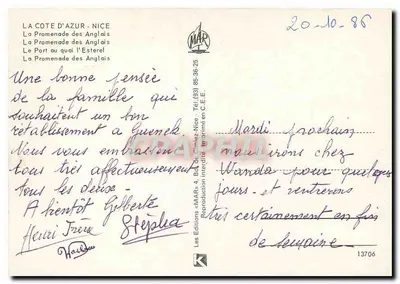 LA COTE D'AZUR - NICE
La Promenade des Anglais
La Promenade des Anglais
Le Port au quai l'Esterel
La Promenade des Anglais
20-10-86
MAR
Une bonne pensée
de la famille qui
souhaitent un bon
rétablissement a
Nous vous embrassons
tous très affectueusement
tous les deux -
A bientôt Gilberte
Henri Frère Stepha
Mardi prochain
nous irons chez
Wanda pour quelques
jours - et rentrerons
très certainement en fin
de semaine
Les Editions «MAR» 4, Nice - Tél. (93) 85-36-25
Reproduction interdite - Imprimé en C.E.E.
K
13706